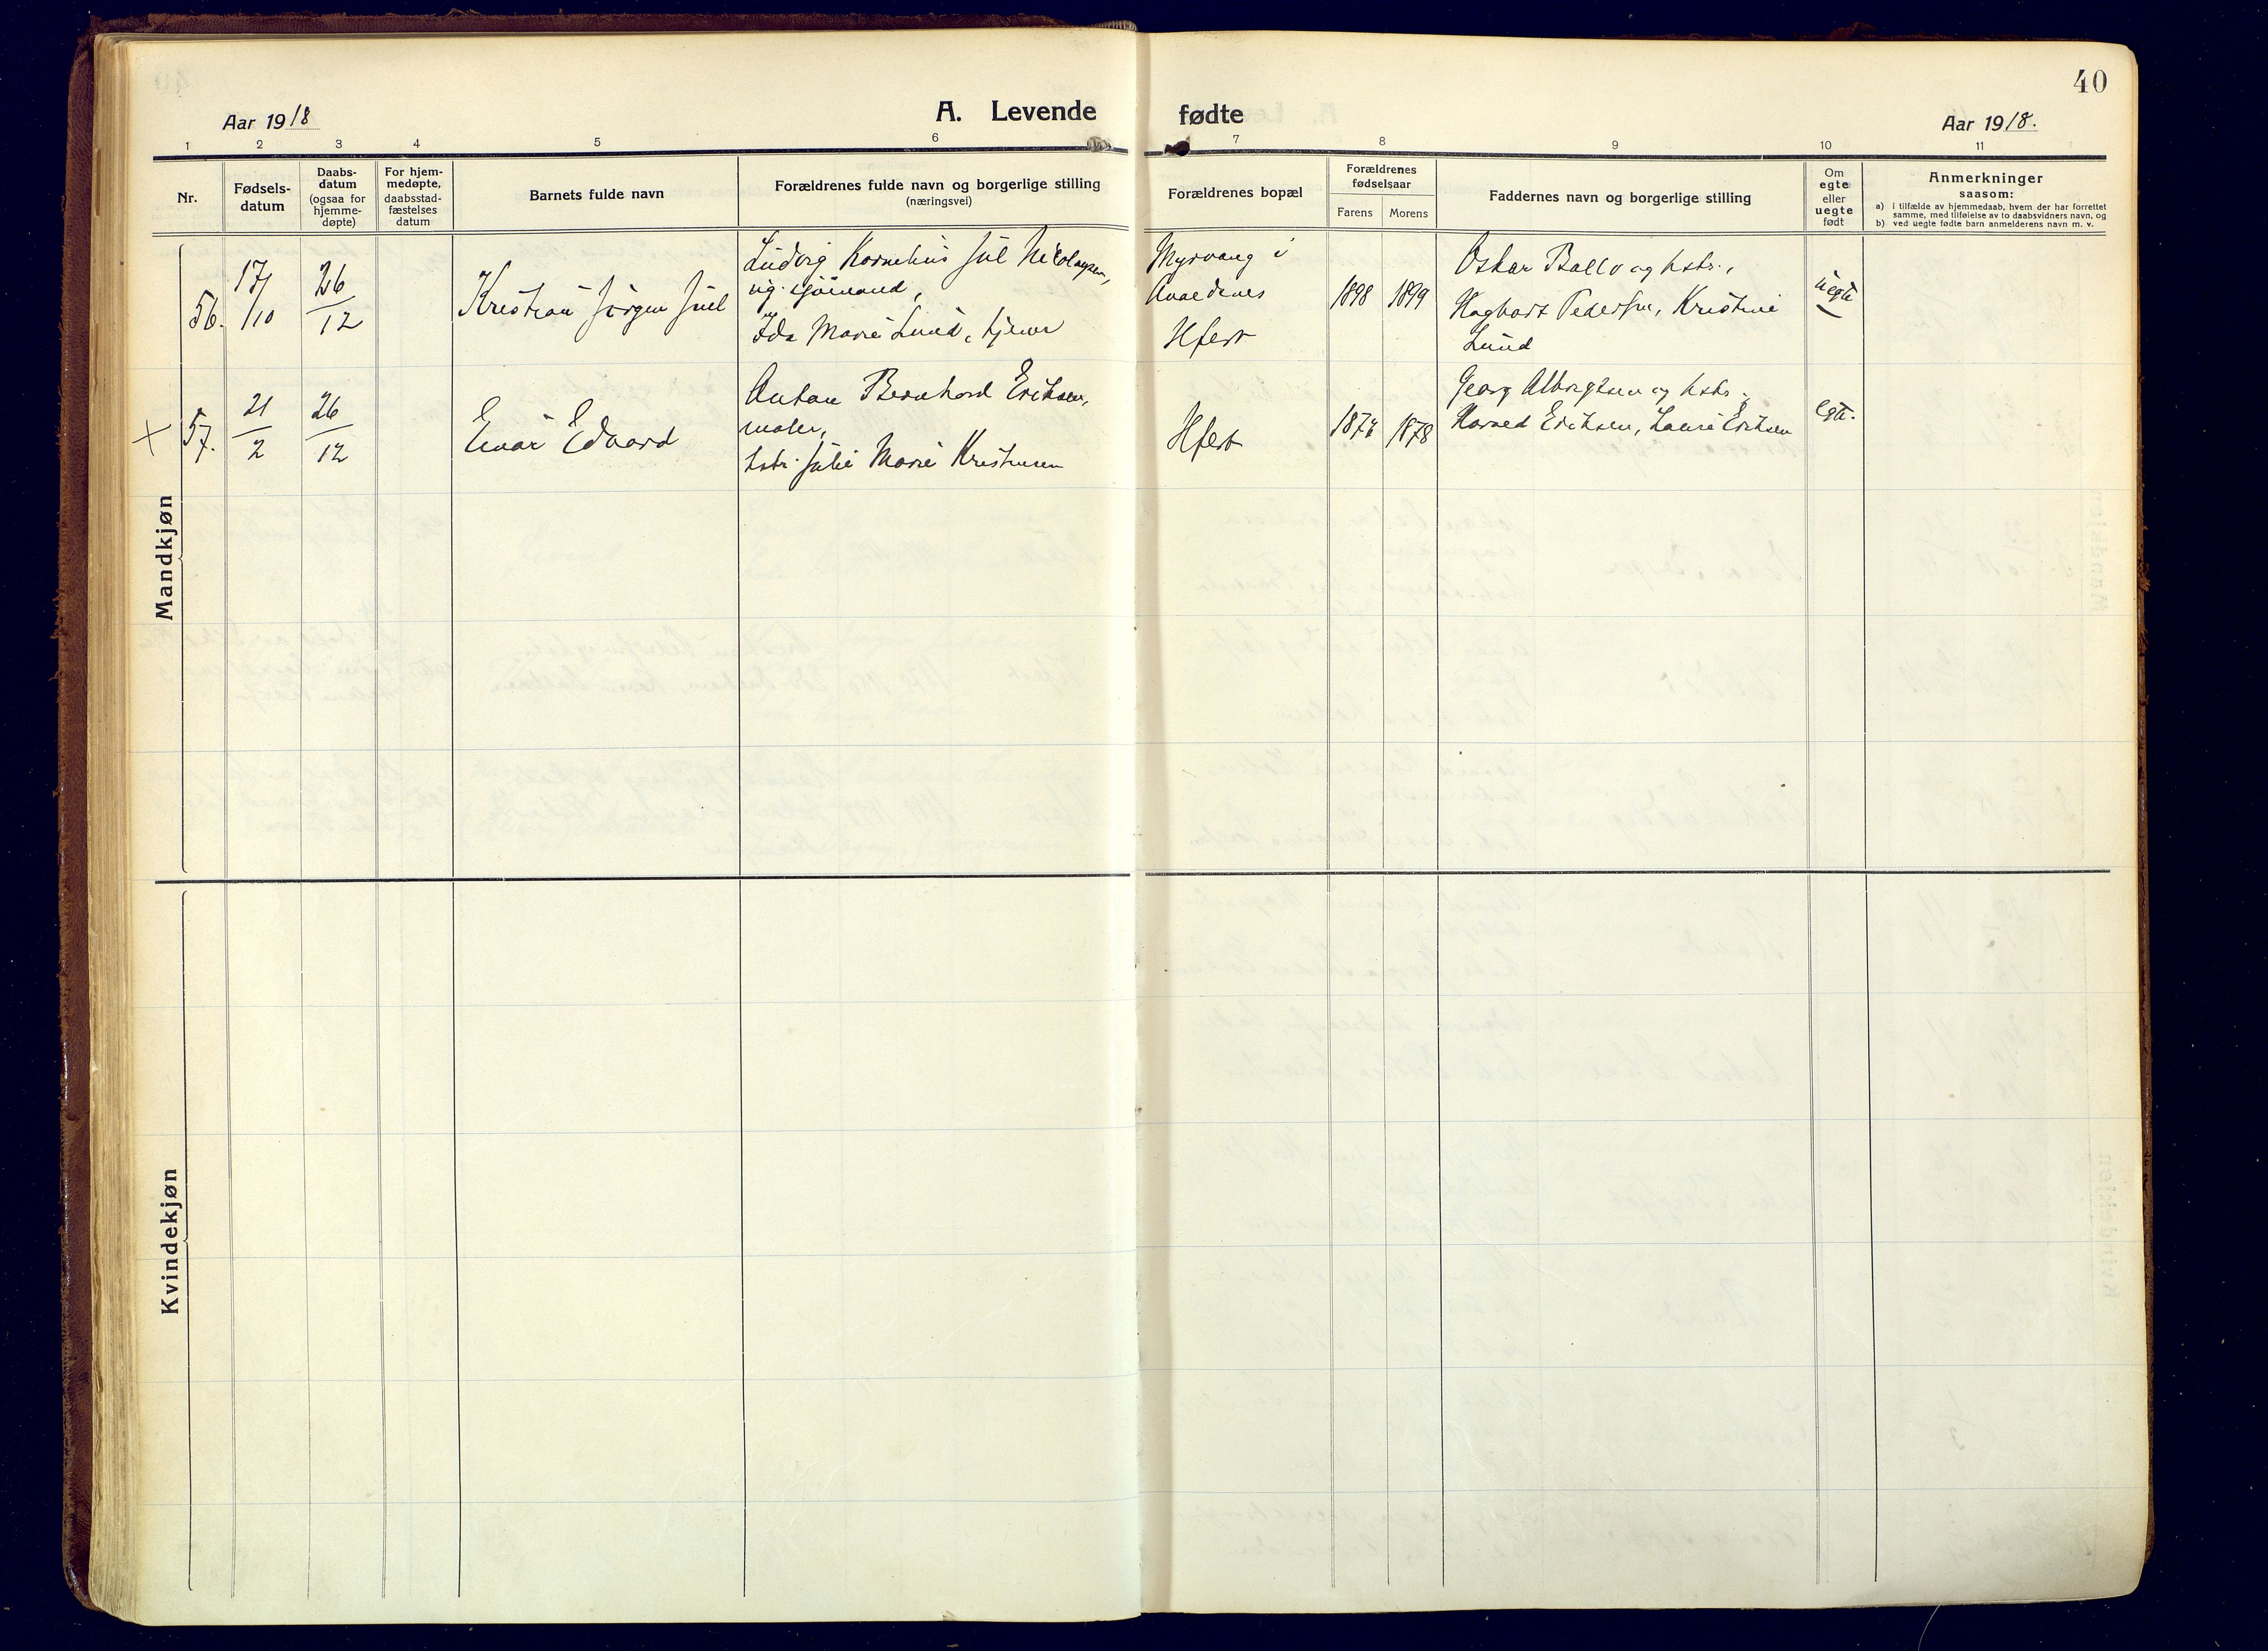 40
A. Levende fødte
Aar 1918
Aar 1918.
1 2 3 4 5 6 7 8 9 10 11
Nr.
Fødsels-
datum
Daabs-
datum
(ogsaa for
hjemme-
døpte)
For hjem-
medøpte,
daabsstad-
fæstelses
datum
Barnets fulde navn
Forældrenes fulde navn og borgerlige stilling
(næringsvei)
Forældrenes bopæl
Forældrenes
fødselsaar
Farens Morens
Faddernes navn og borgerlige stilling
Om
egte
eller
uegte
født
Anmerkninger
saasom:
a) i tilfælde av hjemmedaab, hvem der har forrettet
samme, med tilføielse av to daabsvidners navn, og
b) ved uegte fødte barn anmelderens navn m. v.
Mandkjøn
56.
17/10
26/12
Kristian Jörgen Juel
Ludvig Kornelius Jul Nicolaysen,
ug. sjömand,
Ida Marie Lund, tjener
Myrvang i
Hfest
1898 1899
Oskar Ballo og hstr.,
Hagbart Pedersen, Kristine
Lund
uegte
X 57.
21/2
26/12
Einar Edvard
Anton Bernhard Eriksen,
maler,
hstr. Julie Marie Kristensen
Hfest
1874 1878
Georg Albrigtsen og hstr.,
Harald Eriksen, Laura Eriksen
egte.
Kvindekjøn